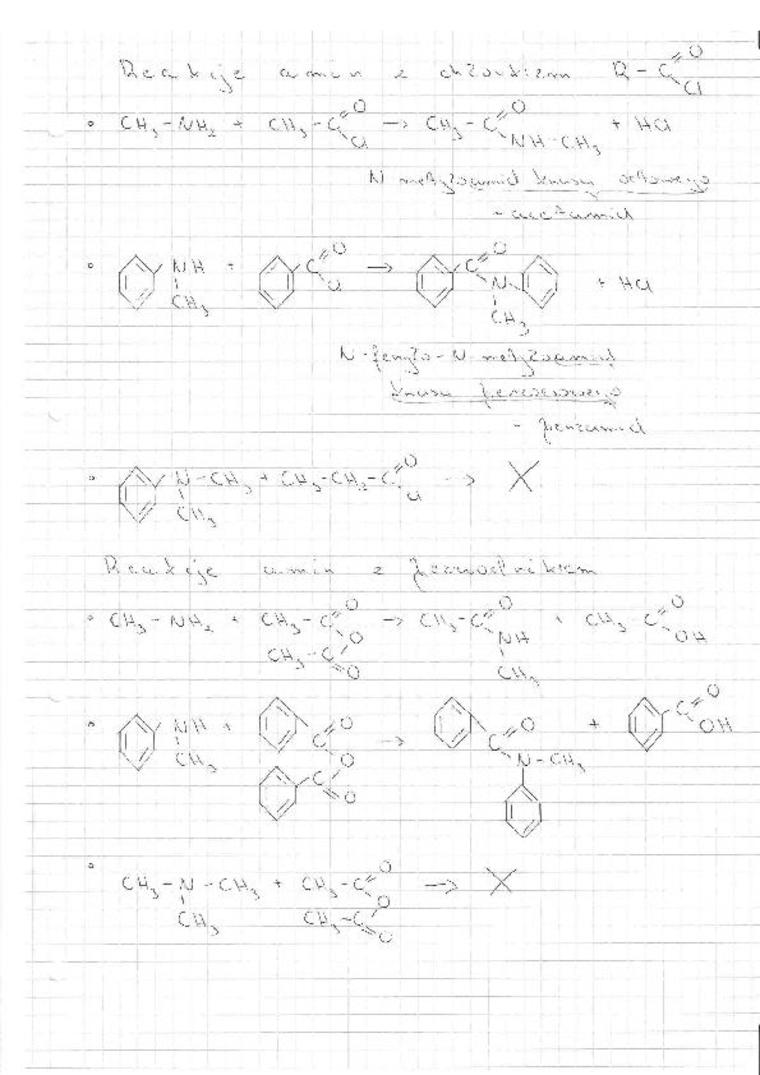 Reakcje amin z chlorkiem R-C(=O)Cl
• CH₃-NH₂ + CH₃-C(=O)Cl → CH₃-C(=O)NH-CH₃ + HCl
N metyloamid kwasu octowego
- acetamid
• NH CH₃ + C(=O)Cl → C(=O)N CH₃ + HCl
N-fenylo-N-metyloamid
kwasu benzoesowego
- benzamid
• N-CH₃ CH₃ + CH₃-CH₂-C(=O)Cl → X
Reakcje amin z bezwodnikiem
• CH₃-NH₂ + CH₃-C(=O)-O-C(=O)-CH₃ → CH₃-C(=O)NH CH₃ + CH₃-C(=O)OH
• NH CH₃ + C(=O)-O-C(=O) → C(=O)N-CH₃ + C(=O)OH
• CH₃-N-CH₃ CH₃ + CH₃-C(=O)-O-C(=O)-CH₃ → X